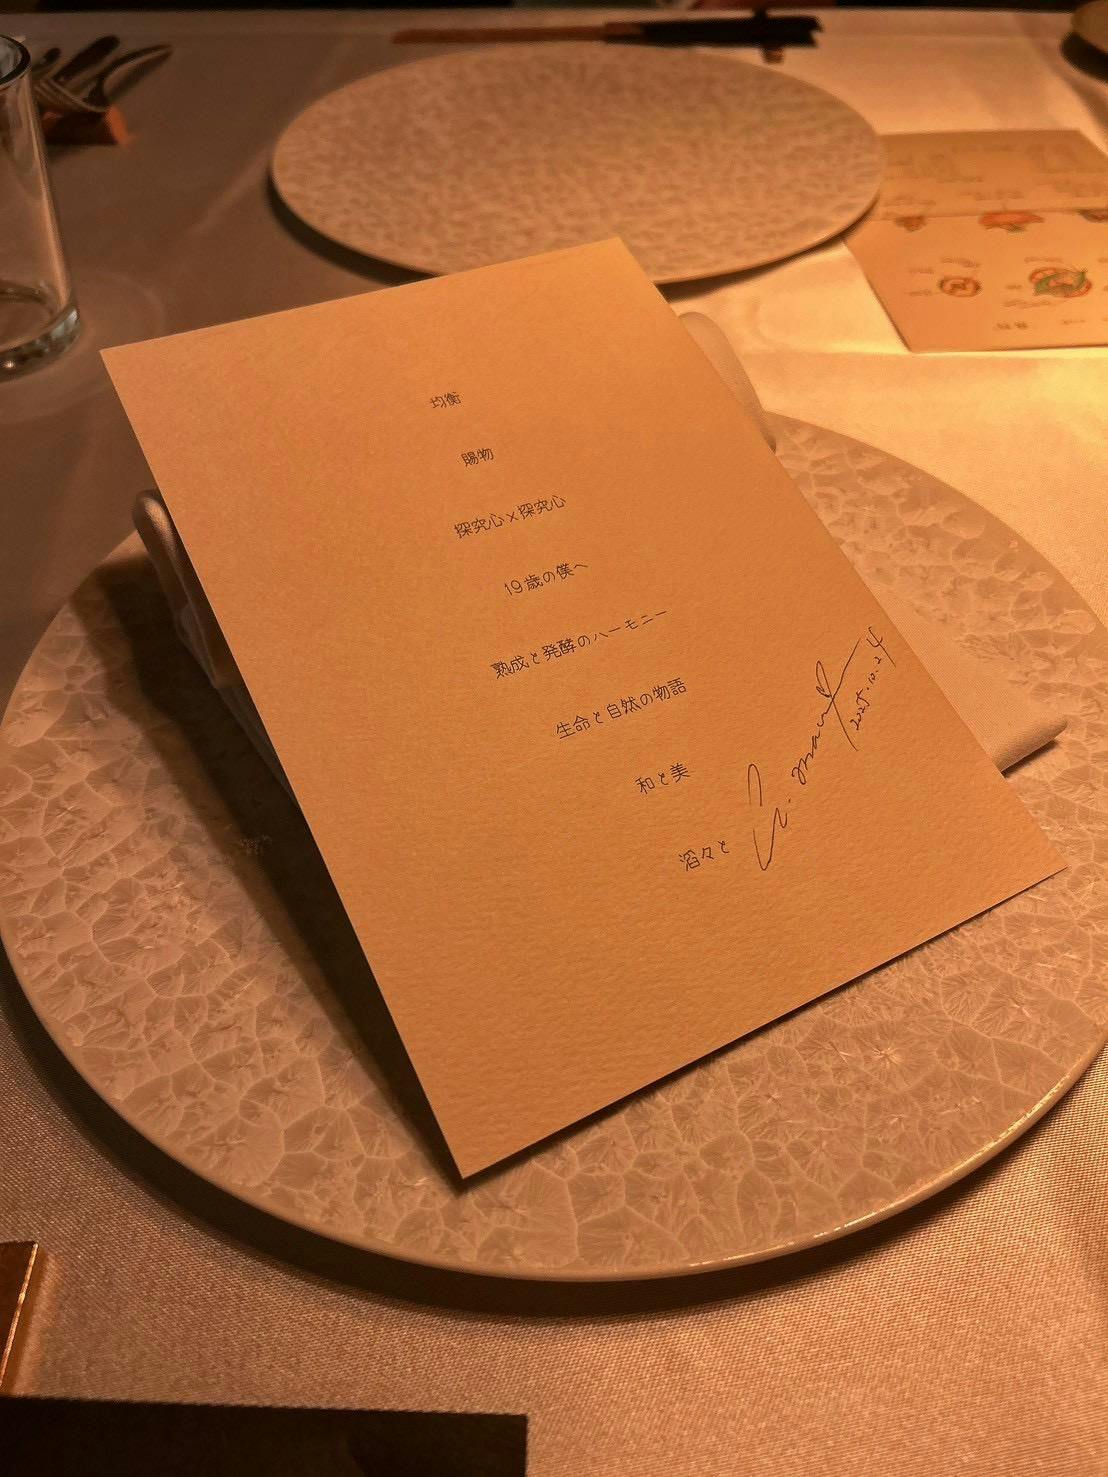 均衡
賜物
探究心×探究心
19歳の僕へ
熟成と発酵のハーモニー
生命と自然の物語
和と美
滔々と
2025.10.24